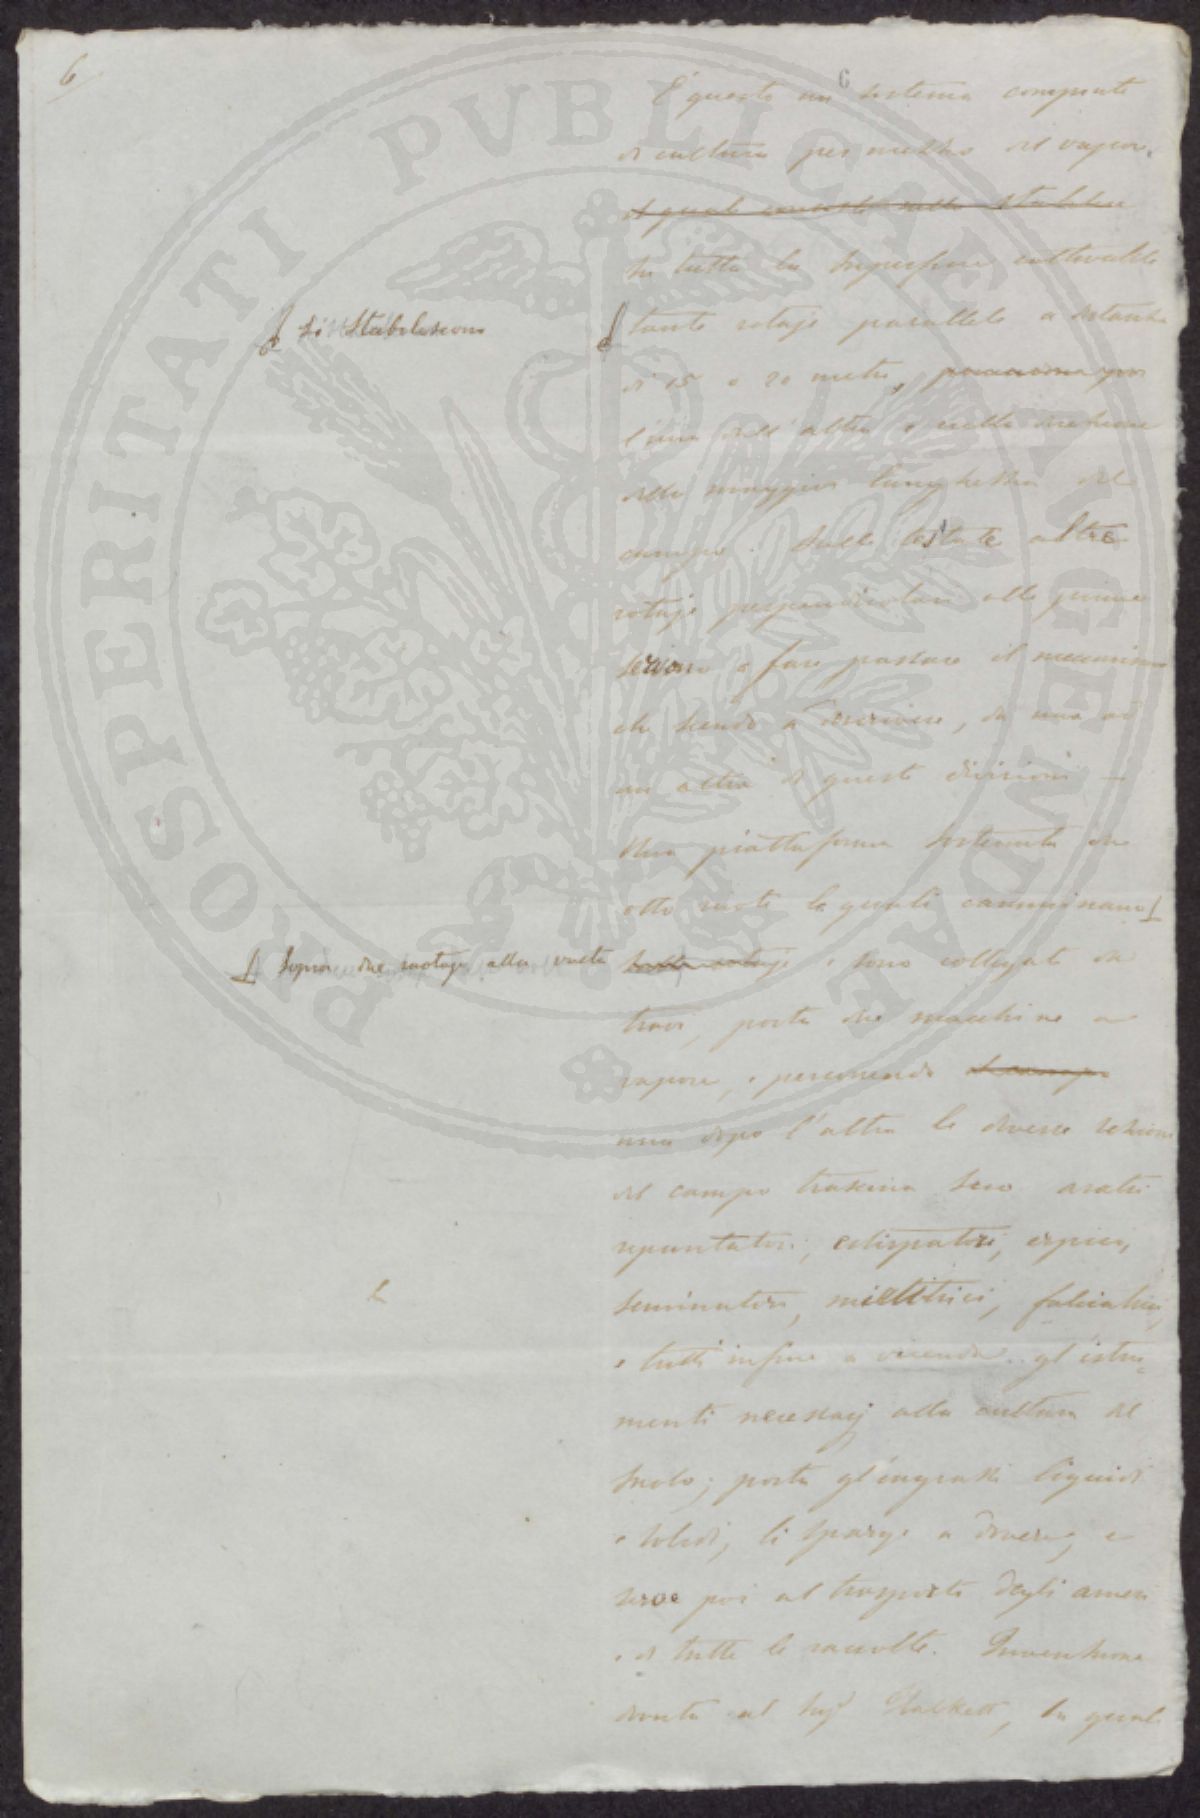 6
6
È questo un sistema compiuto
di cultura per mezzo del vapore.
il quale consiste nello stabilire
Su tutta la superficie coltivabile
si stabiliscono
tante rotaje parallele a distanza
di 15 o 20 metri,
l'una dall'altra e nella direzione
della maggior lunghezza del
campo. Sulle testate altre
rotaje perpendicolari alle prime
servono a fare passare il meccanismo
che sendo a descrivere, da una ad
un altra di queste divisioni —
Una piattaforma sostenuta da
otto ruote le quali camminano
sopra due ruotaje alla volta
sulle rotaje e sono collegate da
travi, porta due macchine a
vapore, e percorrendo il campo
una dopo l'altra le diverse sezioni
del campo trascina seco aratri
ripuntatori, estirpatori, erpici,
seminatori, mietitrici, falciatrici,
e tutti infine a vicenda gl'istru-
menti necessarj alla cultura del
suolo; porta gl'ingrassi liquidi
e solidi, li sparge a dovere, e
serve poi al trasporto degli
e di tutte le raccolte. Invenzione
dovuta al Sigr Halkett, la quale
PROSPERITATI PVBLICAE AVGENDAE